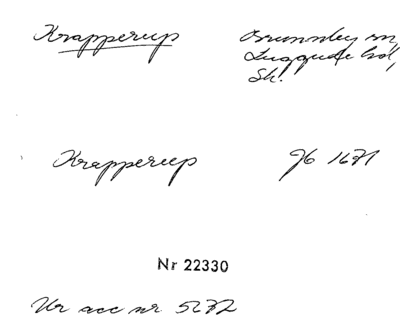 Krapperup
Brunnby sn,
Luggude hd,
Sk.
Krapperup
Jb 1671
Nr 22330
Ur acc nr 5272